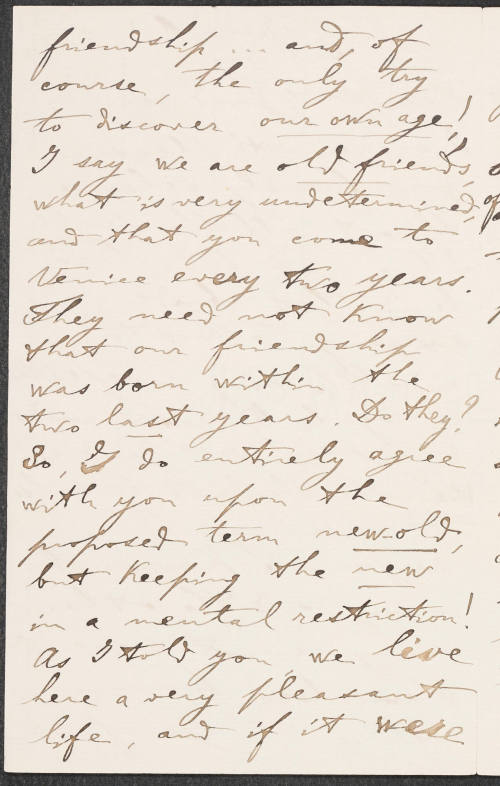 friendship ... and, of
course, the only try
to discover our own age!
I say we are old friends,
what is very undetermined,
and that you come to
Venice every two years.
They need not know
that our friendship
was born within the
two last years. Do they?
So, I do entirely agree
with you upon the
proposed term new-old,
but keeping the new
in a mental restriction!
As I told you, we live
here a very pleasant
life, and if it were